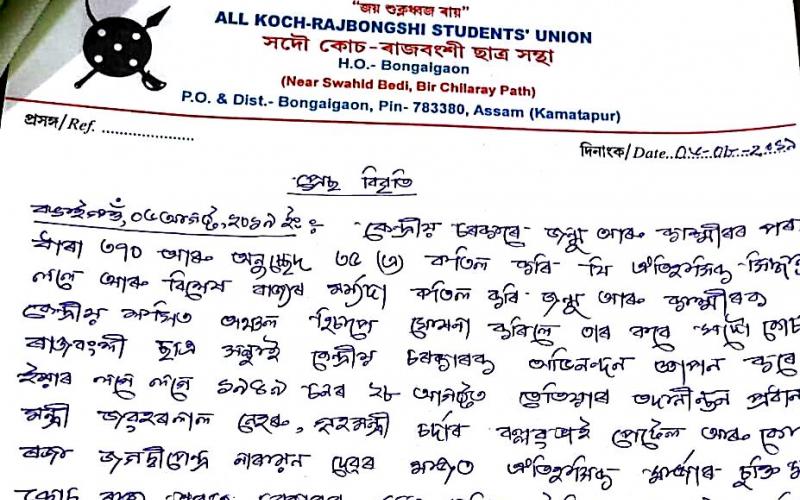 "জয় শুক্লধ্বজ ৰায়"
ALL KOCH-RAJBONGSHI STUDENTS' UNION
সদৌ কোচ-ৰাজবংশী ছাত্ৰ সন্থা
H.O.- Bongaigaon
(Near Swahid Bedi, Bir Chilaray Path)
P.O. & Dist.- Bongaigaon, Pin- 783380, Assam (Kamatapur)
প্ৰসঙ্গ/Ref. ......................
দিনাংক/Date..০৫-০৮-২০১৯
প্ৰেছ বিবৃতি
বঙাইগাওঁ, ০৫ আগষ্ট, ২০১৯ ইং : কেন্দ্ৰীয় চৰকাৰে জম্মু আৰু কাশ্মীৰৰ পৰা
ধাৰা ৩৭০ আৰু অনুচ্ছেদ ৩৫ (এ) বাতিল কৰি যি ঐতিহাসিক সিদ্ধান্ত
ললে আৰু বিশেষ ৰাজ্যৰ মৰ্য্যদা বাতিল কৰি জম্মু আৰু কাশ্মীৰক
কেন্দ্ৰীয় শাসিত অঞ্চল হিচাপে ঘোষনা কৰিলে তাৰ বাবে সদৌ কোচ
ৰাজবংশী ছাত্ৰ সন্থাই কেন্দ্ৰীয় চৰকাৰক অভিনন্দন জ্ঞাপন কৰে
ইয়াৰ লগে লগে ১৯৪৯ চনৰ ২৮ আগষ্টত তেতিয়াৰ তদানীন্তন প্ৰধান
মন্ত্ৰী জৱহৰলাল নেহৰু, গৃহমন্ত্ৰী চৰ্দাৰ বল্লৱভাই পেটেল আৰু কোচ
ৰজা জগদ্দীপেন্দ্ৰ নাৰায়ন দেৱৰ মাজত ঐতিহাসিক মাৰ্জাৰ চুক্তি
কোচ ৰাজ্য